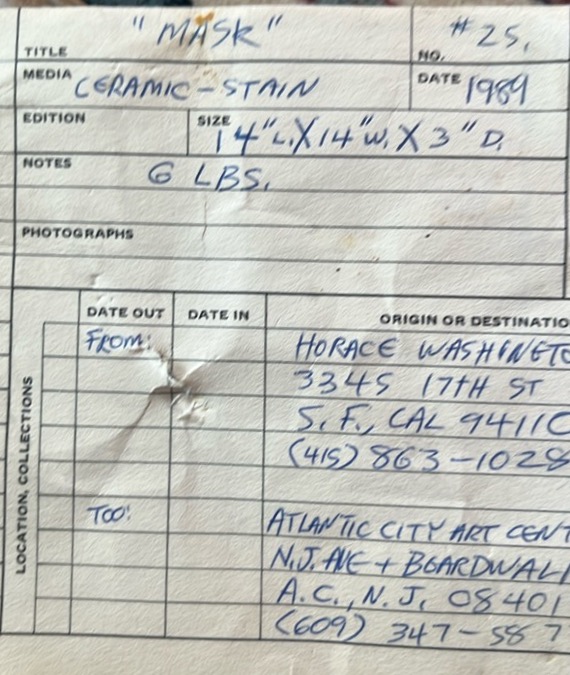 TITLE "MASK" NO. #25.
MEDIA CERAMIC-STAIN DATE 1989
EDITION SIZE 14"L. X 14"W. X 3"D.
NOTES 6 LBS.
PHOTOGRAPHS
DATE OUT DATE IN ORIGIN OR DESTINATIO
LOCATION, COLLECTIONS
FROM: HORACE WASHINGTO
3345 17TH ST
S.F., CAL 94110
(415) 863-1028
TOO: ATLANTIC CITY ART CENT
N.J. AVE + BOARDWAL
A.C., N.J. 08401
(609) 347-587